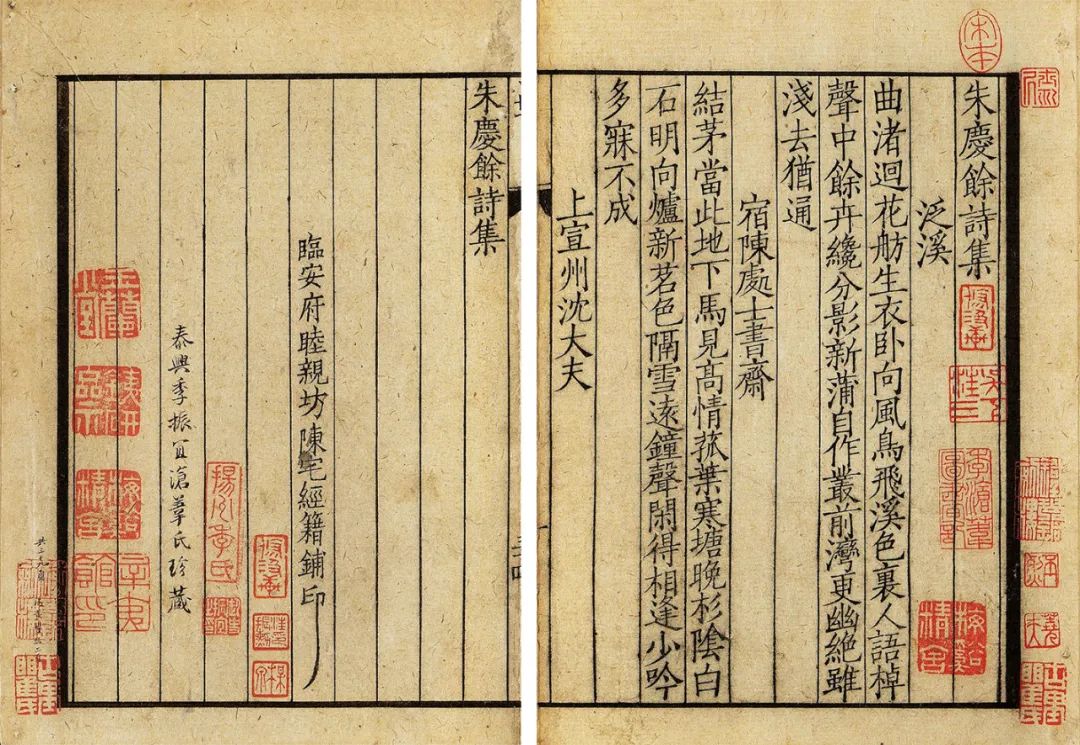 朱慶餘詩集
泛溪
曲渚迴花舫生衣卧向風鳥飛溪色裏人語棹
聲中餘卉纔分影新蒲自作叢前灣更幽絶雖
淺去猶通
宿陳處士書齋
結茅當此地下馬見高情菰葉寒塘晚杉陰白
石明向爐新茗色隔雪遠鐘聲閑得相逢少吟
多寐不成
上宣州沈大夫
朱慶餘詩集
臨安府睦親坊陳宅經籍鋪印
泰興季振宜滄葦氏珍藏
宋本
季滄葦
揚州季氏